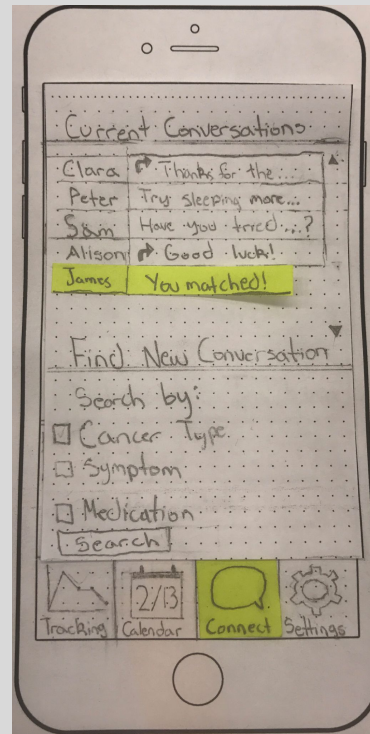 Current Conversations
Clara Thanks for the ...
Peter Try sleeping more...
Sam Have you tried...?
Alison Good luck!
James You matched!
Find New Conversation
Search by:
Cancer Type
Symptom
Medication
Search
2/13
Tracking Calendar Connect Settings